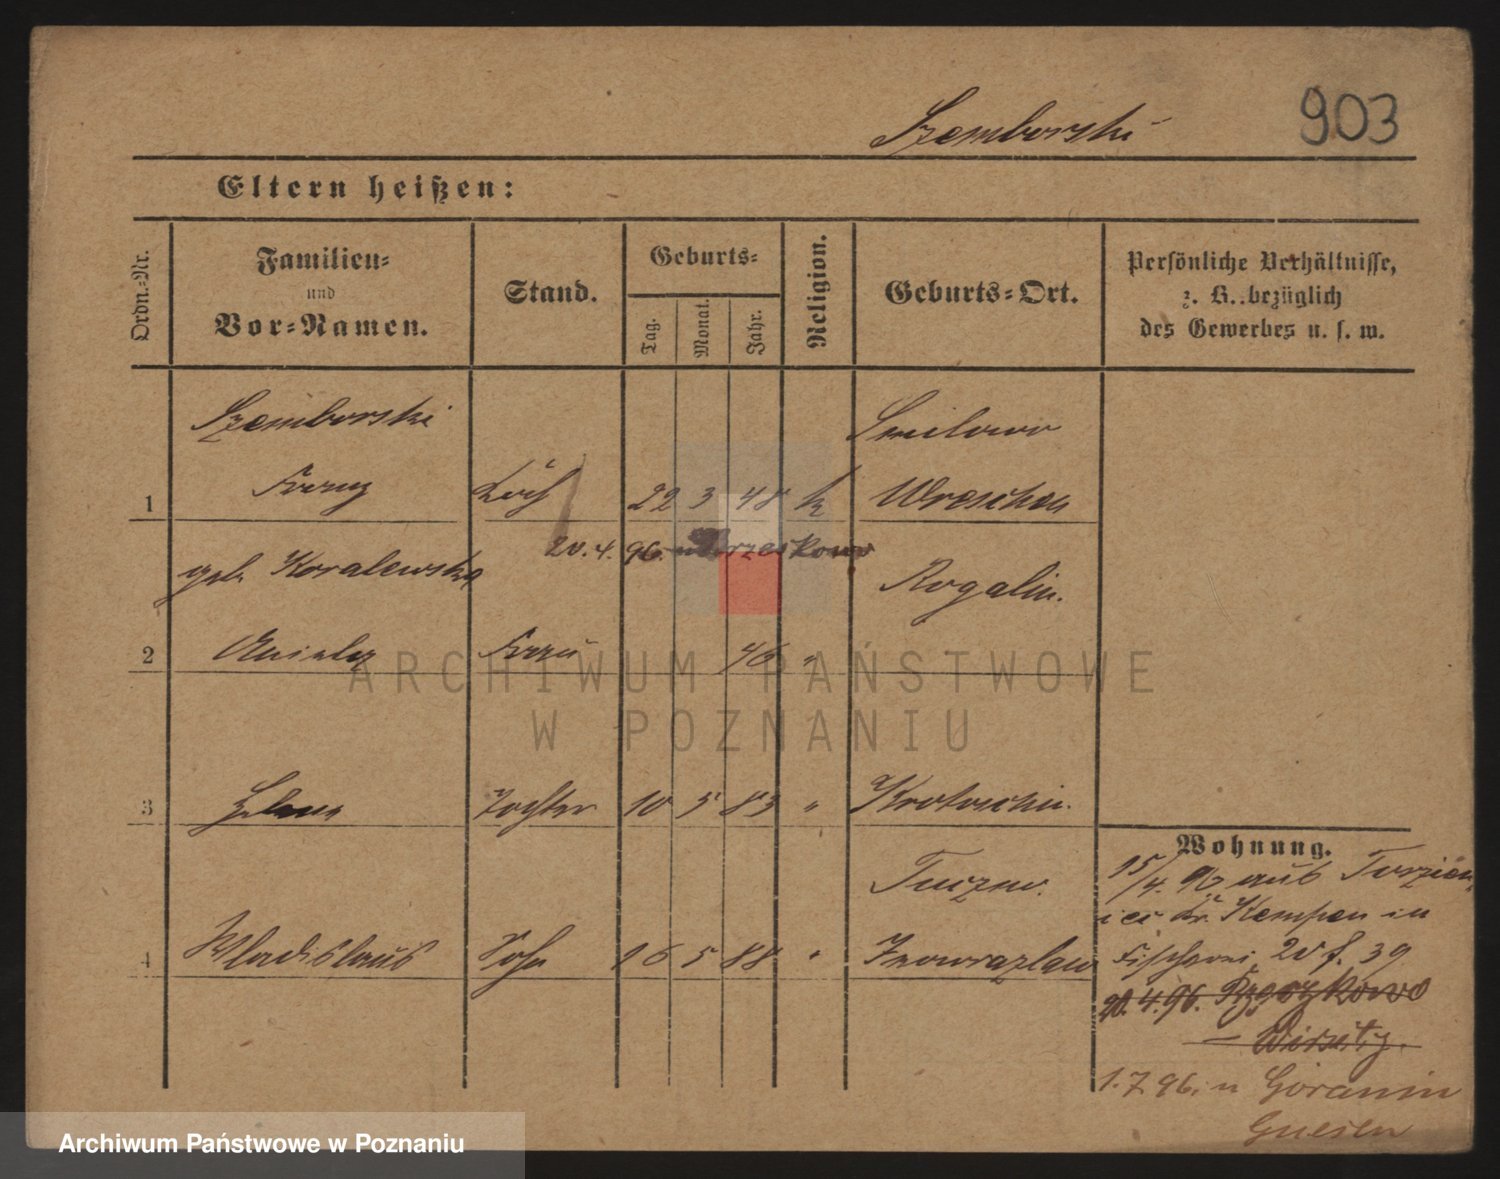 Szemborski
903
Eltern heißen:
Ordn.-Nr.
Familien-
und
Vor-Namen.
Stand.
Geburts-
Tag.
Monat.
Jahr.
Religion.
Geburts-Ort.
Persönliche Verhältnisse,
z. B. bezüglich
des Gewerbes u. s. w.
Szemborski
Smilowo
1 Franz Koch 22 3 48 k Wreschen
20. 4. 96. n Brzeskowo
geb. Koralewska
Rogalin.
2 Aniela Frau 46 "
3 Helene Tochter 10 5 83 " Krotoschin.
Tuczno.
4 Wladislaus Sohn 26 5 88 " Inowrazlaw
Wohnung.
15/4. 96 aus Torzien-
iec Kr. Kempen in
Fischerei 20 f. 39
20. 4. 96. Rzeszkowo
– Wirsitz.
1. 7. 96. n Goranin
Gnesen
ARCHIWUM PAŃSTWOWE
W POZNANIU
Archiwum Państwowe w Poznaniu